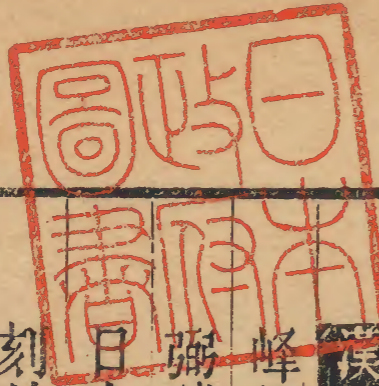 日本
政府
圖書
峰
弼
日
刻